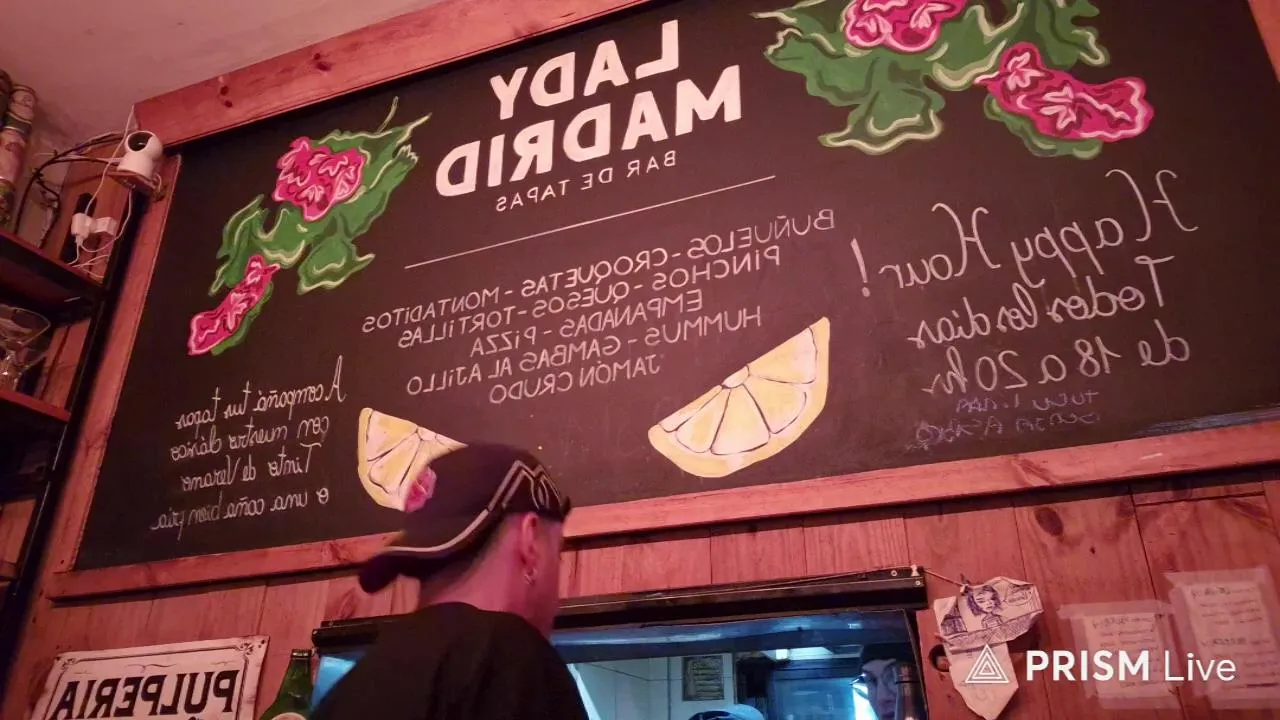 LADY
MADRID
BAR DE TAPAS
BUÑUELOS - CROQUETAS - MONTADITOS
PINCHOS - QUESOS - TORTILLAS
EMPANADAS - PIZZA
HUMMUS - GAMBAS AL AJILLO
JAMÓN CRUDO
Happy Hour!
Todos los días
de 18 a 20 hs
Acompañá tus tapas
con nuestro clásico
Tinto de Verano
o una caña bien fría
PULPERIA
PRISM Live